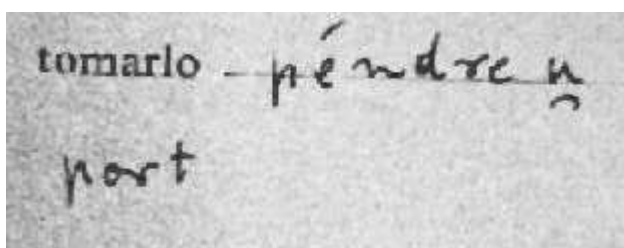 tomarlo - péndre u̯
part